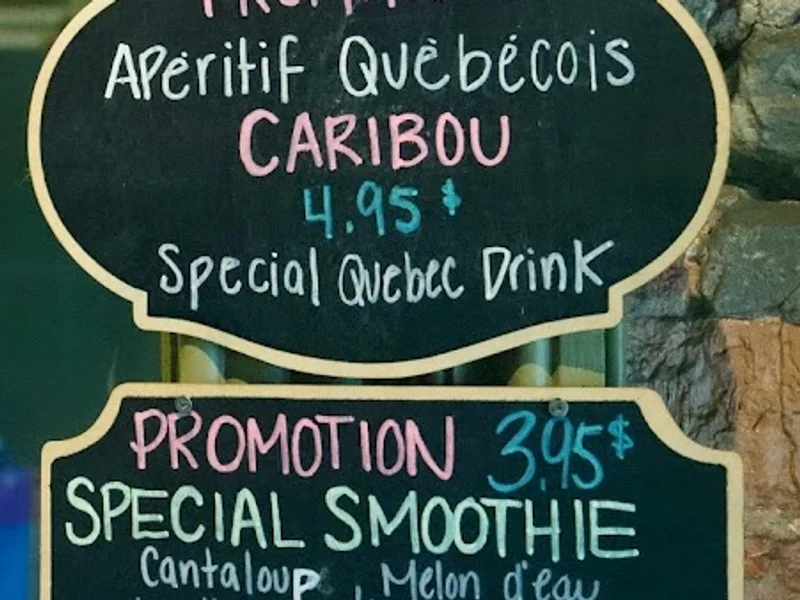 Apéritif Québécois
CARIBOU
4.95 $
Special Quebec Drink
PROMOTION 3.95 $
SPECIAL SMOOTHIE
Cantaloup, Melon d'eau